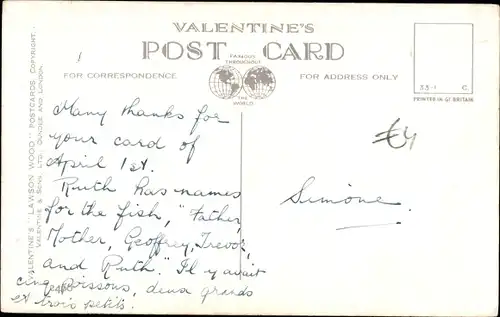 VALENTINE'S
POST CARD
FAMOUS THROUGHOUT
THE WORLD
FOR CORRESPONDENCE
FOR ADDRESS ONLY
33-1 C.
PRINTED IN GT BRITAIN
VALENTINE'S "LAWSON WOOD" POSTCARDS. COPYRIGHT.
VALENTINE & SONS, LTD. DUNDEE AND LONDON.
Many thanks for
your card of
April 1st.
Ruth has names
for the fish, "Father,
Mother, Geoffrey, Trevor,
and Ruth." Il y avait
cinq poissons, deux grands
et trois petits.
Simone.
€4